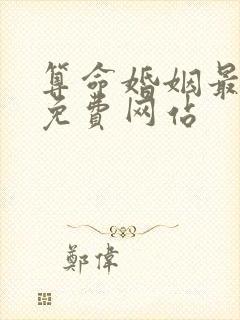 算命婚姻最
免費网站
鄭偉